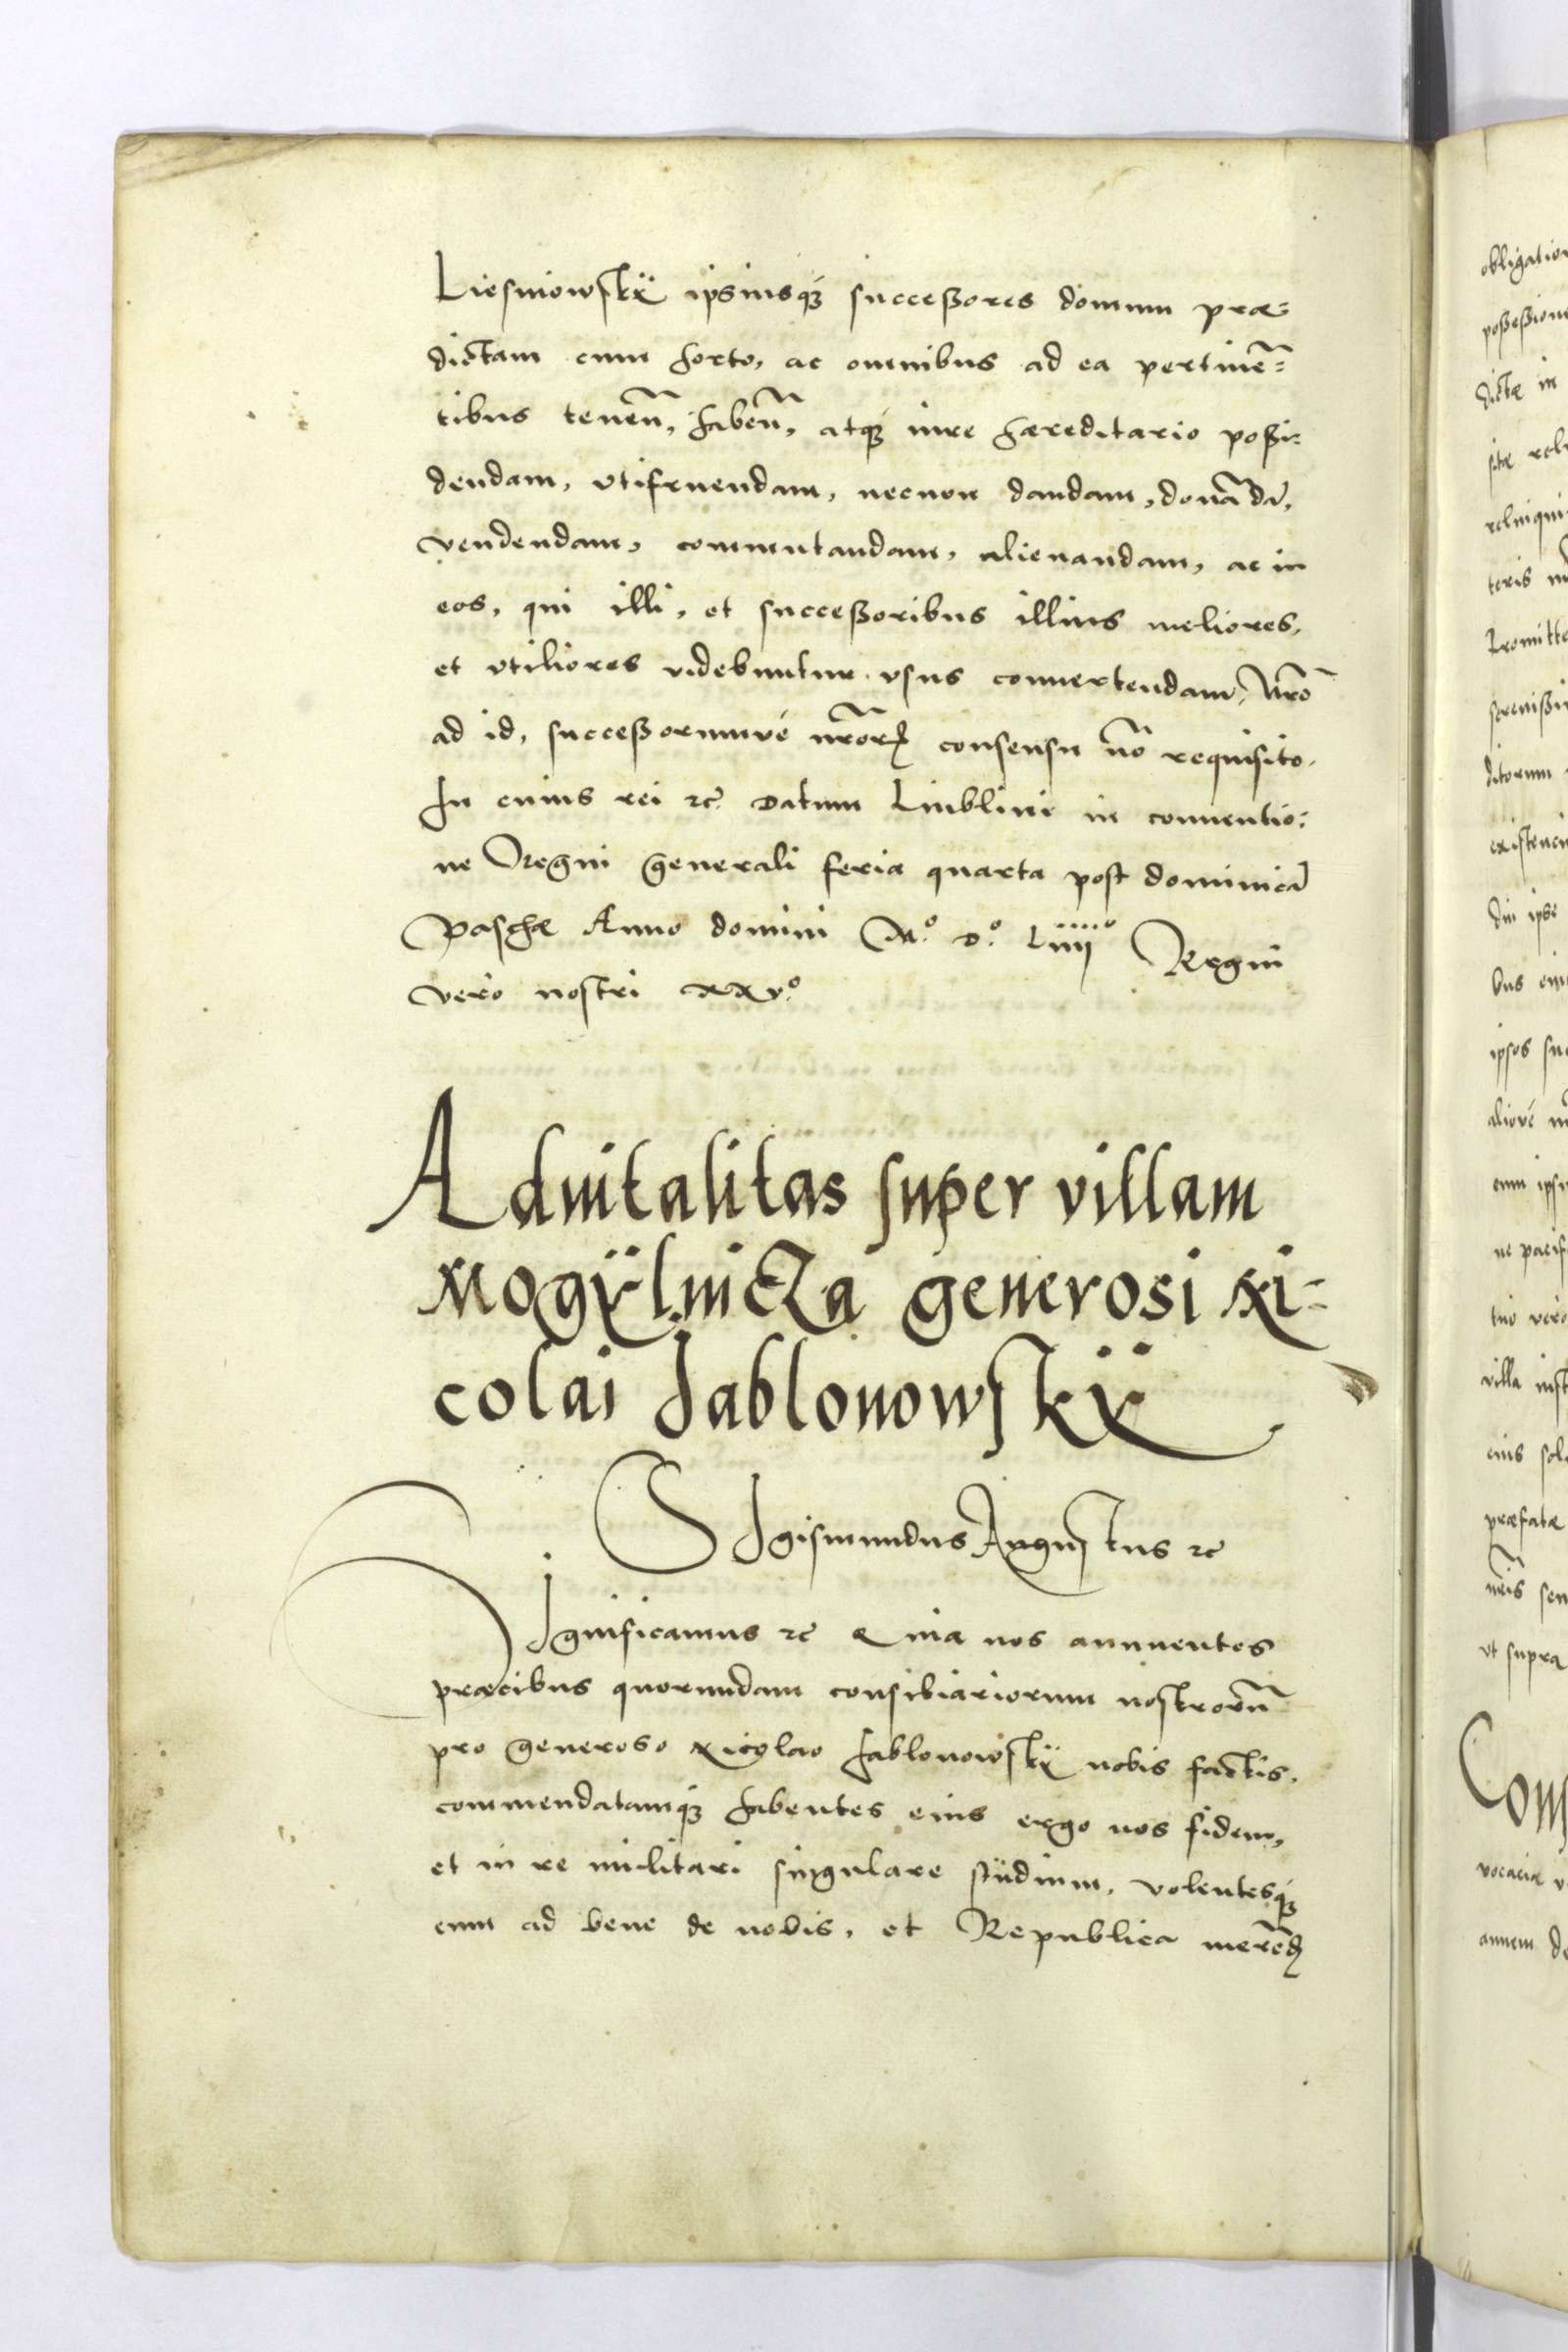 Liesniowskÿ ipsiusq₃ succeßores domum præ=
dictam cum horto, ac omnibus ad ea pertinē=
tibus tenen̄, haben̄, atq₃ iure hæreditario poßi=
dendam, vtifruendam, necnon dandam, donādā,
vendendam, commutandam, alienandam, ac in
eos, qui illi, et succeßoribus illius meliores,
et vtiliores videbuntur vsus conuertendam, Nr̄o
ad id, succeßorumvé nr̄orꝝ consensu nō requisito.
In cuius rei ꝛc̄ Datum Liublini in conuentio=
ne Regni generali feria quarta post dominicā
Paschæ Anno domini M.º D.º Liiiiº Regni
vero nostri xxv.º
Aduitalitas super villam
Mogÿlnicza generosi Ni=
colai Jablonowskÿ
SIgismundus Augustus ꝛc̄
SIgnificamus ꝛc̄ Quia nos annuentes
præcibus quorundam consiliariorum nostrorū
pro generoso Nicolao Jablonowskÿ nobis factis,
commendatamq₃ habentes eius ergo nos fidem,
et in re militari singulare studium, volentesq₃
eum ad bene de nobis, et Republica merēdꝫ
obligation
poßeßione
dictæ in
sitæ reli
relinqui
teris
Promitte
serenißi
ditorum
existenci
diu ipse
bus eiu
ipsos su
aliové
cum ipsu
ne pacif
tuo vero
villa iust
eius sol
præfatæ
nr̄is sen
vt supra
Cons
vocacia
annum de